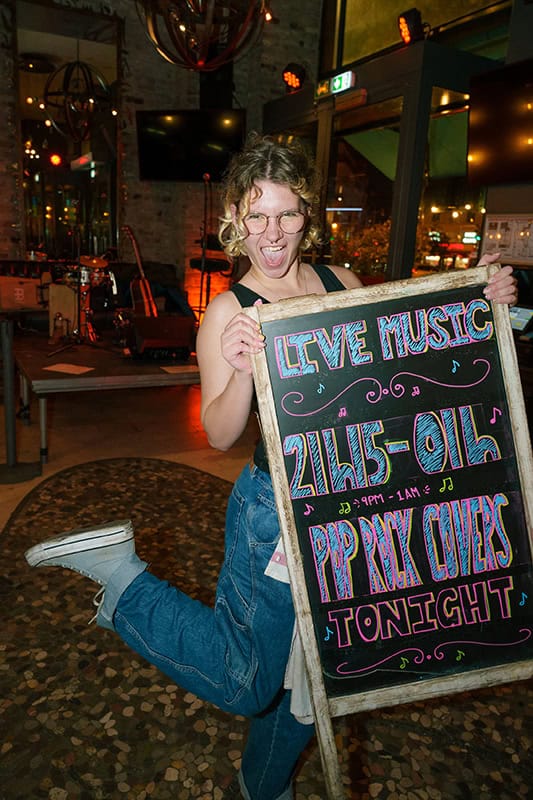 LIVE MUSIC
21H15-01h
9PM - 1AM
POP ROCK COVERS
TONIGHT